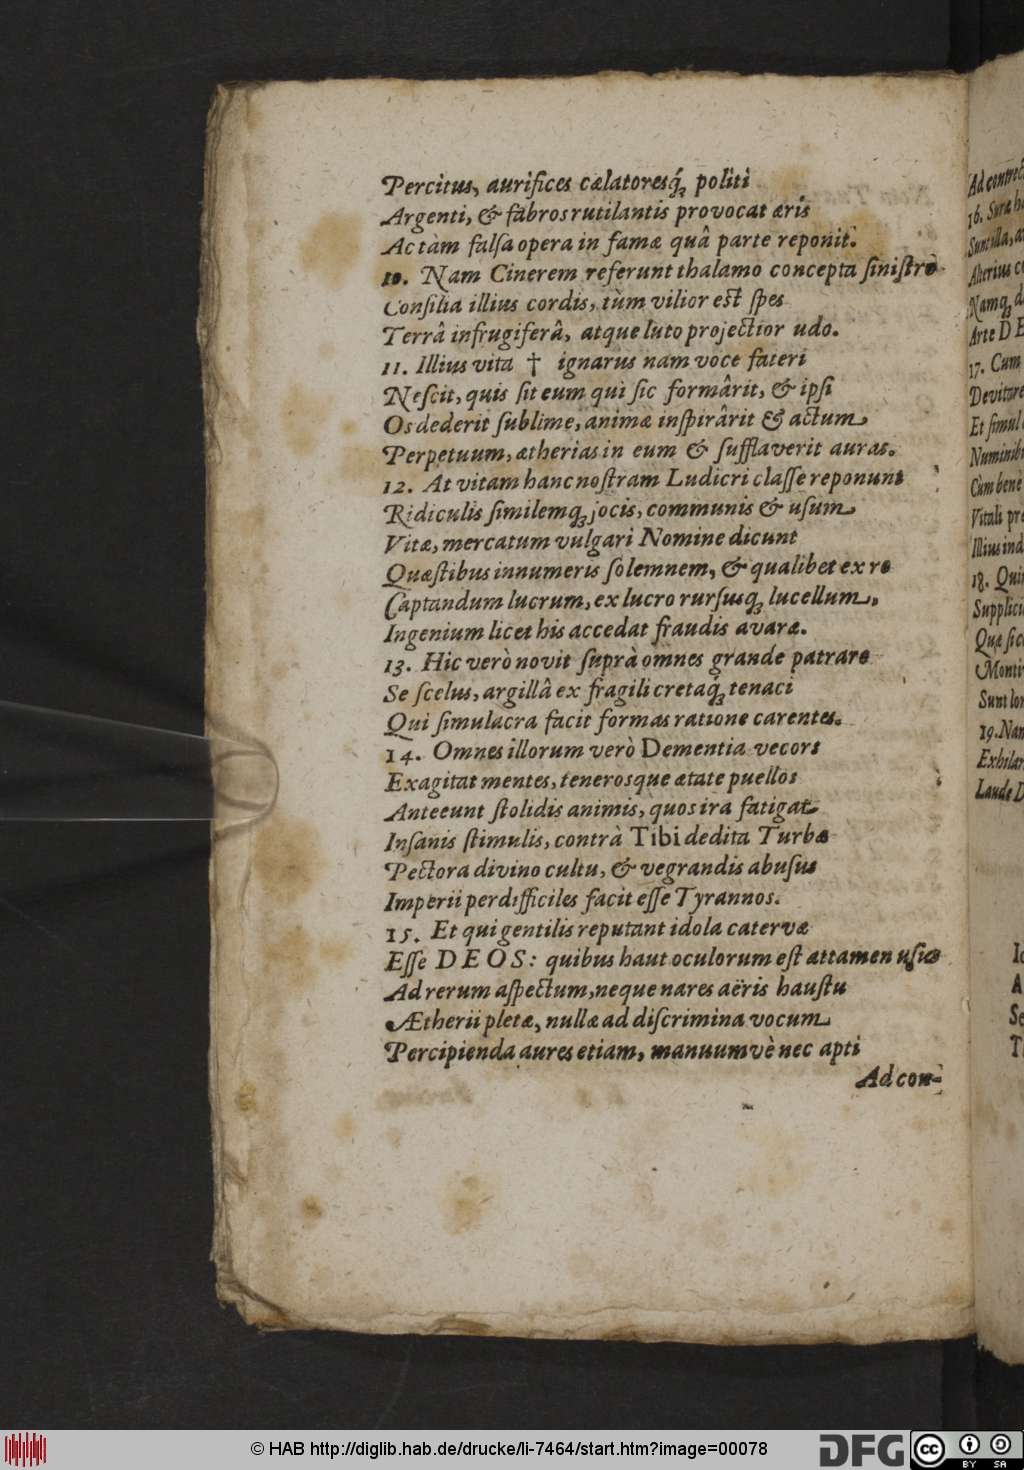 Percitus, aurifices cælatoresq́; politi
Argenti, & fabros rutilantis provocat æris
Ac tàm falſa opera in famæ quâ parte reponit.
10. Nam Cinerem referunt thalamo concepta ſiniſtro
Conſilia illius cordis, tùm vilior eſt ſpes
Terrâ infrugiferâ, atque luto projectior udo.
11. Illius vita † ignarus nam voce fateri
Neſcit, quis ſit eum qui ſic formârit, & ipſi
Os dederit ſublime, animæ inſpirârit & actum
Perpetuum, ætherias in eum & ſufflaverit auras.
12. At vitam hanc noſtram Ludicri claſſe reponunt
Ridiculis ſimilemq; jocis, communis & uſum
Vitæ, mercatum vulgari Nomine dicunt
Quæſtibus innumeris ſolemnem, & qualibet ex re
Captandum lucrum, ex lucro rurſusq; lucellum,
Ingenium licet his accedat fraudis avaræ.
13. Hic verò novit ſuprà omnes grande patrare
Se ſcelus, argillâ ex fragili cretaq́; tenaci
Qui ſimulacra facit formas ratione carentes.
14. Omnes illorum verò Dementia vecors
Exagitat mentes, tenerosque ætate puellos
Anteeunt ſtolidis animis, quos ira fatigat
Inſanis ſtimulis, contrà Tibi dedita Turbæ
Pectora divino cultu, & vegrandis abuſus
Imperii perdifficiles facit eſſe Tyrannos.
15. Et qui gentilis reputant idola catervæ
Eſſe DEOS: quibus haut oculorum eſt attamen uſus
Ad rerum aſpectum, neque nares aëris hauſtu
Ætherii pletæ, nullæ ad diſcrimina vocum
Percipienda aures etiam, manuumvè nec apti
Ad con-
16. Sura
Ætherius
Namq; d
Arte DE
17. Cum
Devitare
Et ſimul
Cùm benè
Vitali
18. Qui
Quæ ſic
Sunt
19. Nam
Laude D
© HAB http://diglib.hab.de/drucke/li-7464/start.htm?image=00078
DFG
cc
BY SA